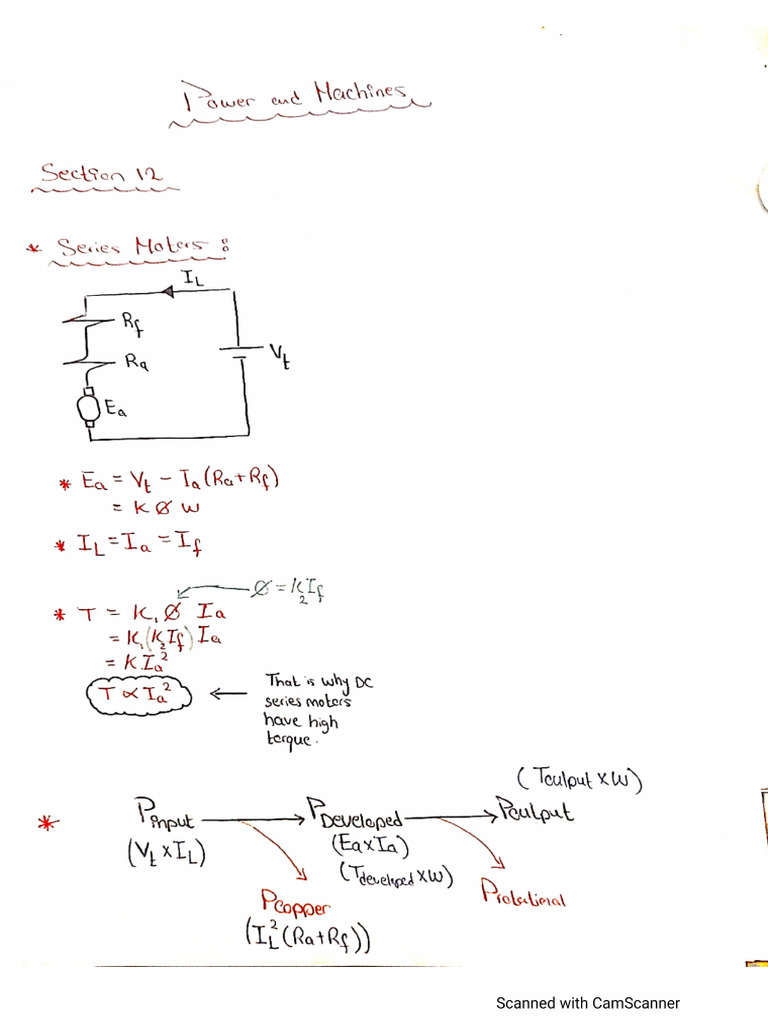 Power and Machines
Section 12
* Series Motors :
I_L
R_f
R_a
V_t
E_a
* E_a = V_t - I_a (R_a + R_f)
= K Ø w
* I_L = I_a = I_f
Ø = K_2 I_f
* T = K_1 Ø I_a
= K_1 (K_2 I_f) I_a
= K I_a^2
T ∝ I_a^2
That is why DC
series motors
have high
torque.
(Toutput x w)
* P_input → P_Developed → Poutput
(V_t x I_L)
(Ea x Ia)
(T_developed x w)
Pcopper
Protational
(I_L^2 (Ra + R_f))
Scanned with CamScanner